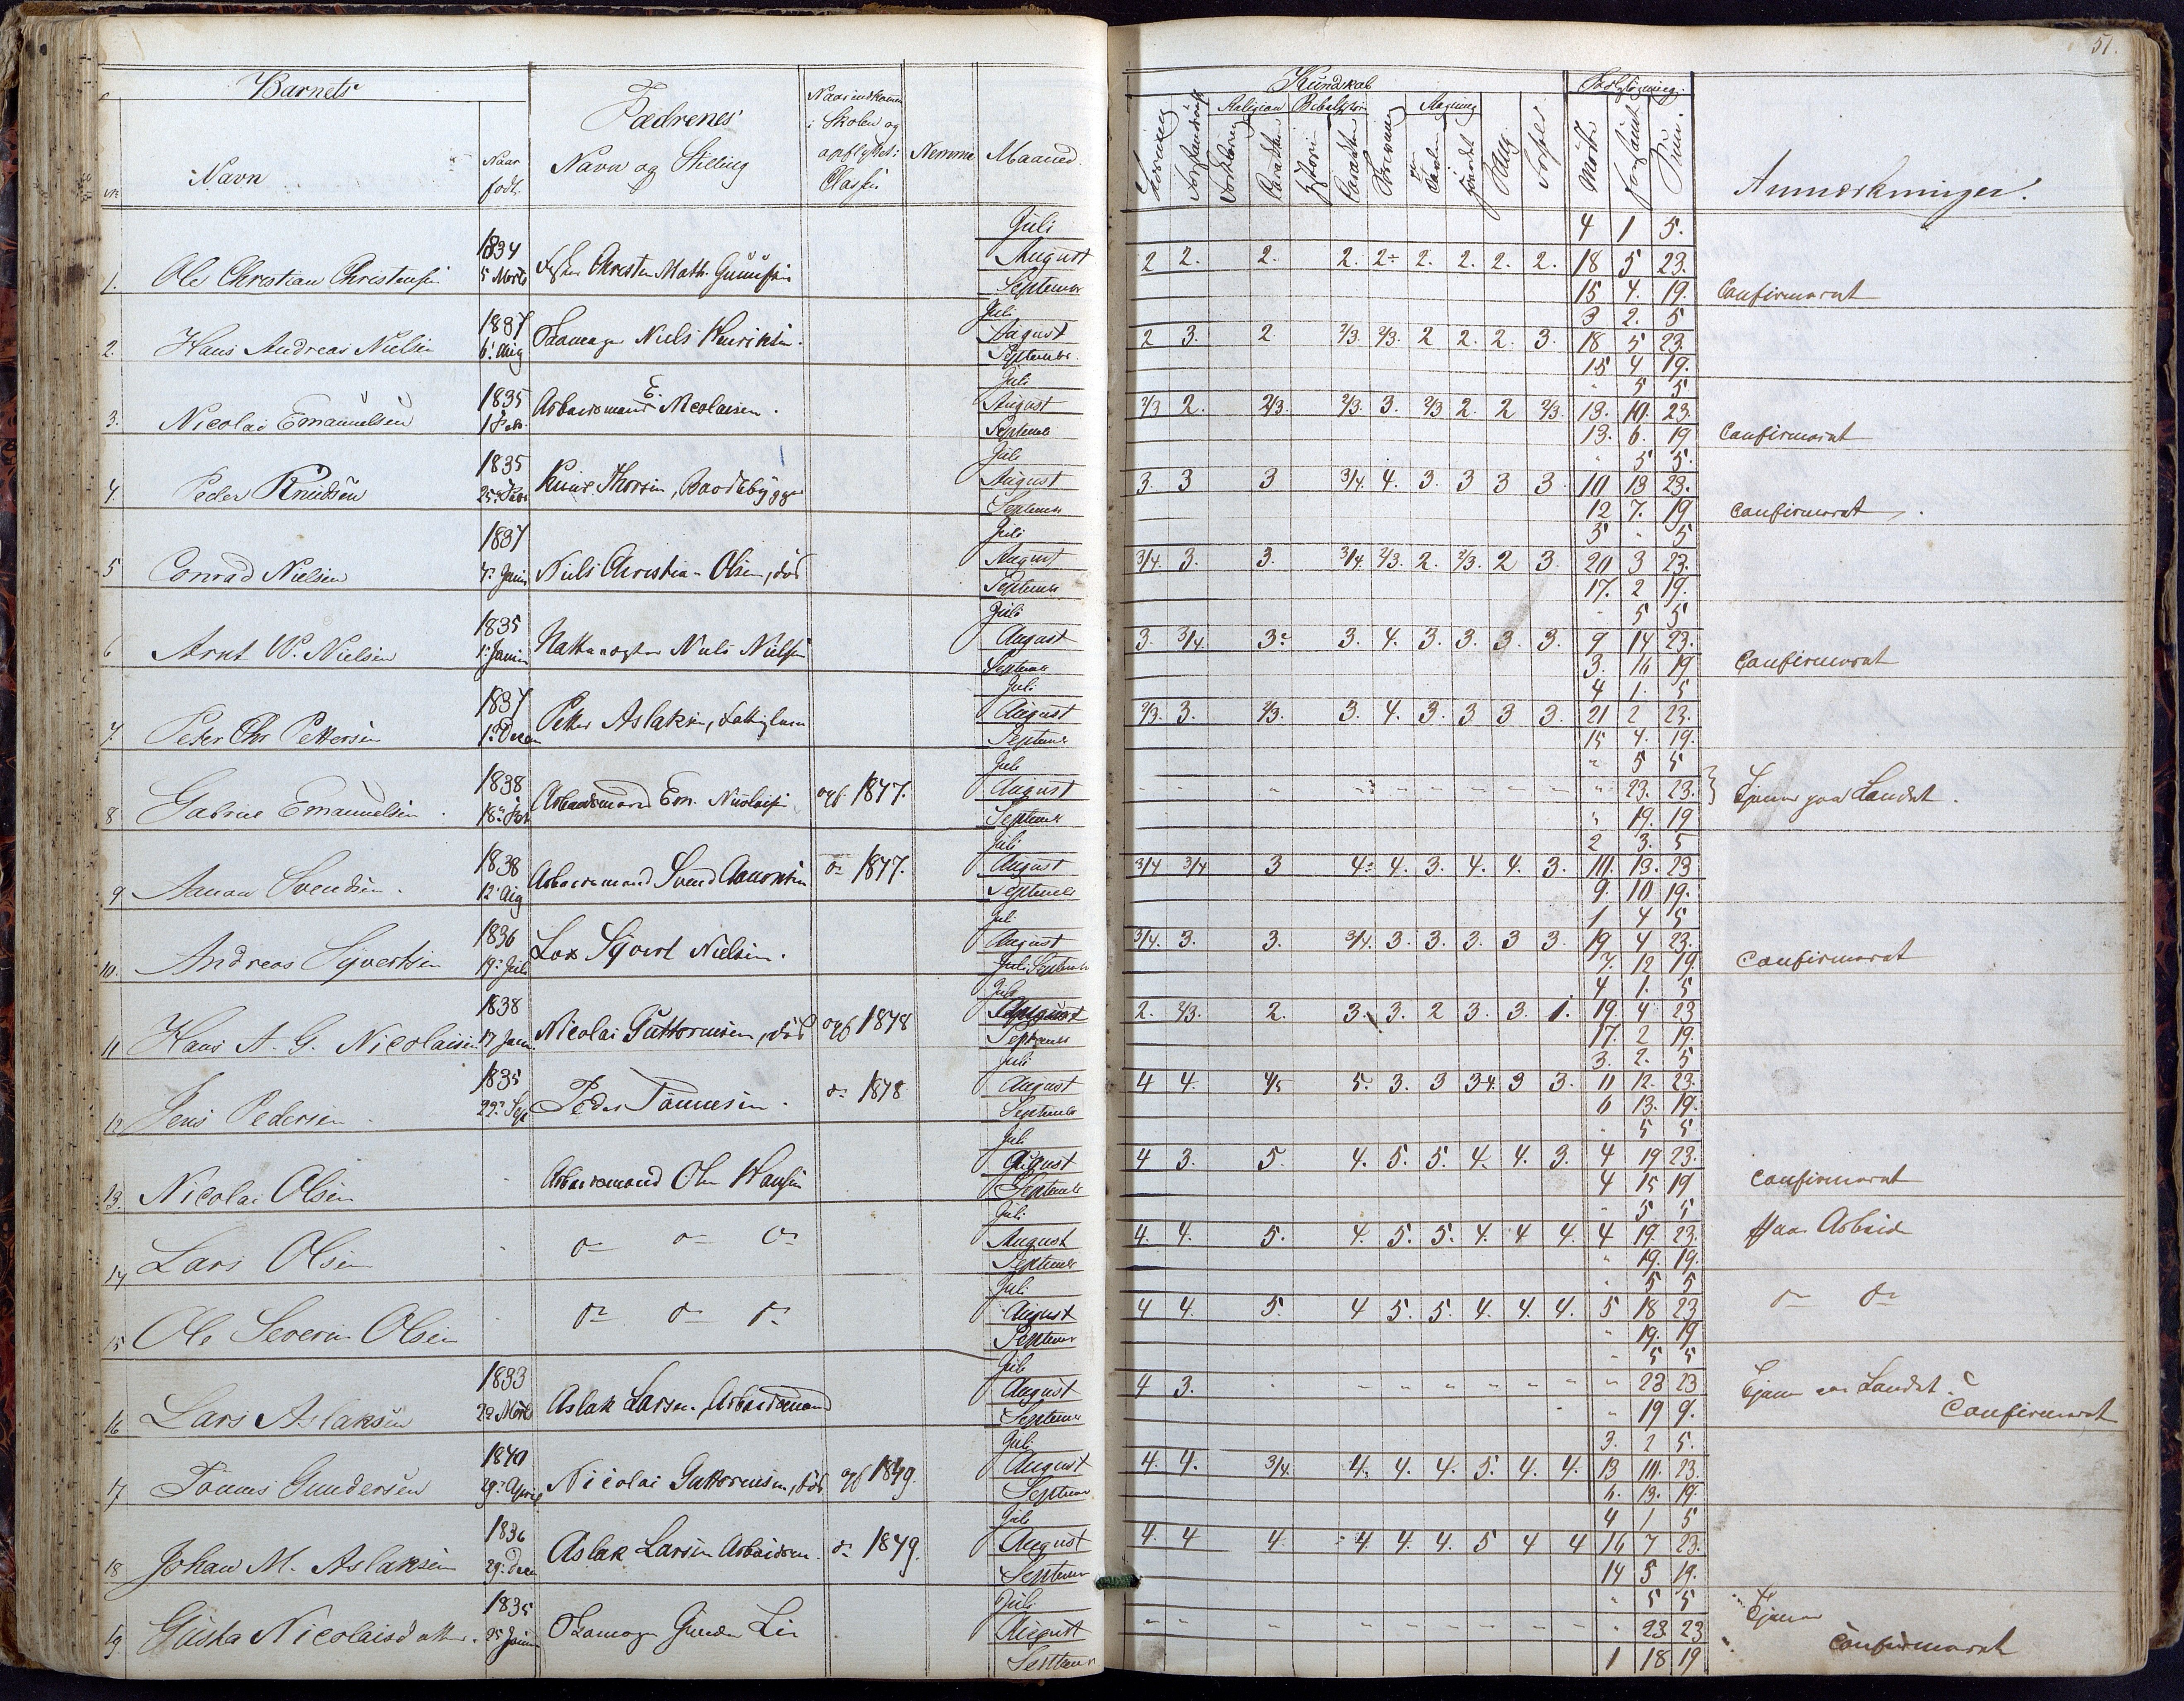 51.
Barnets
Navn
Naar født.
Fædrenes
Navn og Stilling
i Skolen og
opflyttet i
Classen
Nemme
Maaned.
Kundskab
Religion
Regning
Sang
Møtte
Forsømt
Sum.
Anmærkninger.
1. Ole Christian Christensen 1834 5 Marts
Juli 4 1 5.
August 2 2. 2. 2. 2÷ 2. 2. 2. 2. 18 5 23.
September 15 4. 19. Confirmeret
2. Hans Andreas Nielsen 1837 6 Aug Niels Henriksen.
Juli 3 2. 5
August 2 3. 2. 2/3. 2/3. 2 2. 2. 3. 18 5 23.
September 15 4 19.
3. Nicolai Emanuelsen 1835 1 Feb. Arbeidsmand E. Nicolaisen.
Juli " 5 5
August 2/3 2. 2/3. 2/3. 3. 2/3 2. 2 2/3. 13. 10. 23
September 13. 6. 19 Confirmeret
4. Peder Knudsen 1835 25 Febr Knud Thorsen, Baadebygger
Juli " 5 5.
August 3. 3 3 3/4. 4. 3. 3 3 3. 10 13 23.
September 12 7. 19 Confirmeret.
5 Conrad Nielsen 1837 Niels Christian Olsen, død
Juli 5 " 5
August 3/4. 3. 3. 3/4. 2/3. 2. 2/3. 2 3. 20 3 23.
September 17. 2 19.
6 Arnt W. Nielsen 1835 Niels Nielsen
Juli " 5 5
August 3. 3/4. 3. 3. 4. 3. 3. 3. 3. 9 14 23.
September 3. 16 19 Confirmeret
7. Peter Chr Pettersen 1837 1 Decem Petter Aslaksen, Fattiglem
Juli 4 1. 5
August 2/3. 3. 2/3. 3. 4. 3. 3 3 3. 21 2 23.
September 15 4. 19.
8 Gabriel Emanuelsen. 1838 18 Feb Arbeidsmand Em. Nicolaisen opf. 1847.
Juli " 5 5
August " 23. 23. Tjener paa Landet.
September " 19. 19
9 Aanon Svendsen. 1838 12 Aug Arbeidsmand Svend Aanonsen do 1847.
Juli 2 3. 5
August 3/4 3/4 3 4. 4. 3. 4. 4. 3. 10. 13. 23
September 9. 10 19.
10. Andreas Syvertsen 1836 19 Juli Los Syvert Nielsen.
Juli 1 4 5
August 3/4. 3. 3. 3/4. 3. 3. 3. 3 3. 19 4 23.
September 7. 12 19. Confirmeret
11 Hans A. G. Nicolaisen 1838 17 Nicolai Guttormsen, død opf 1848
Juli 4 1. 5
August 2. 2/3. 2. 3. 3. 2 3. 3. 1. 19. 4 23
September 17. 2 19.
12 Jens Pedersen 1835 22 Sept Peder Tønnesen. do 1848
Juli 3. 2. 5
August 4 4. 4/5 5. 3. 3 3 4. 3 3. 11 12. 23.
September 6 13. 19.
13. Nicolai Olsen Arbeidsmand Ole Hansen
Juli " 5 5
August 4 3. 5. 4. 5. 5. 4. 4. 3. 4 19 23.
September 4 15 19 Confirmeret
14 Lars Olsen do do do
Juli " 5 5
August 4. 4. 5. 4. 5. 5. 4. 4 4. 4 19. 23. Har Arbeide
September " 19. 19.
15 Ole Severin Olsen do do do
Juli " 5 5
August 4 4. 5. 4 5. 5. 4. 4. 4. 5 18 23 do do
September " 19. 19
16 Lars Aslaksen 1833 Aslak Larsen, Arbeidsmand
Juli " 5 5
August 4 3. " 23 23 Tjener paa Landet.
September " 19 9. Confirmeret
17 Tønnes Gundersen 1840 29 April Nicolai Guttormsen, død opf 1849.
Juli 3. 2 5.
August 4. 4. 3/4. 4. 4. 4. 5. 4. 4. 13 10. 23.
September 6. 13. 19.
18 Johan M. Aslaksen 1836 29 Decm Aslak Larsen Arbeidsm. do 1849.
Juli 4 1 5
August 4. 4 4. 4 4. 4. 5 4 4 16 7 23.
September 14 5 19.
19. Gusta Nicolaisdatter. 1835 Gunder Lie
Juli " 5 5
August " 23. 23 Tjener
September 1 18 19 Confirmeret